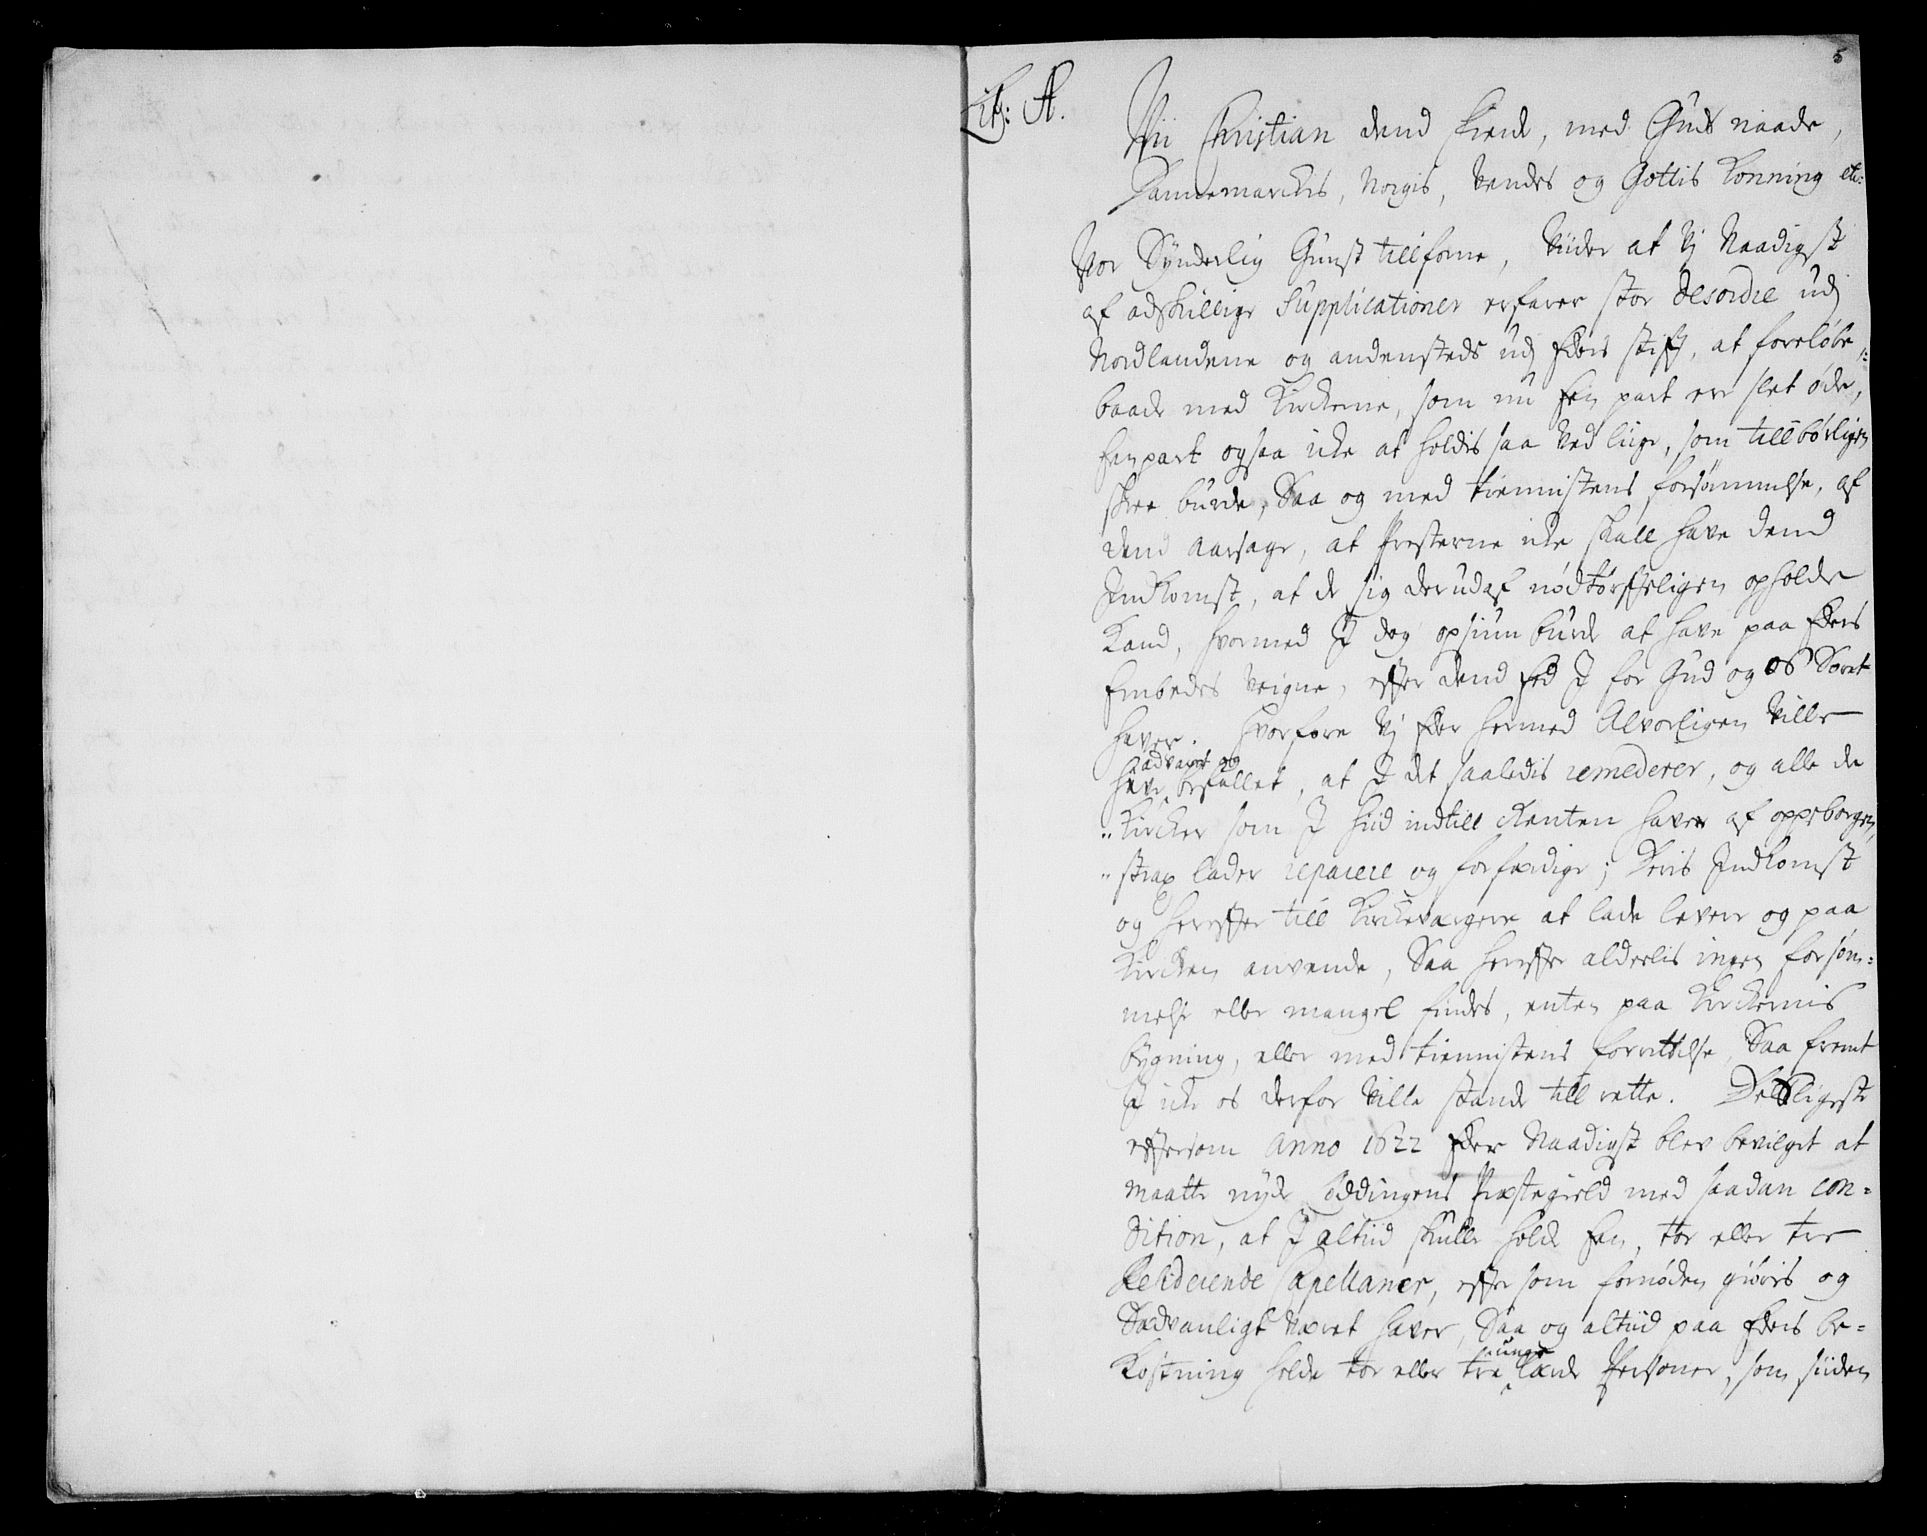 5
Lit: A.
Wii Christian dend fierde, med Guds naade,
Dannemarckis, Norgis, Vendes og Gottis Konning etc:
Vor Synderlig Gunst tillforne, Viider at Vj Naadigst
af adskillige Supplicationer erfarer stor desordre udj
Nordlandene og andensteds udj Eders stift, at foreløbe,
baade med Kirckerne, som nu Een part er slet øde,
Een part ogsaa icke at holdis saa Ved lige, som tillbørligen
skee burde, Saa og med tiennistens forsømmelse, af
dend Aarsage, at Presterne icke skall have dend
Indkomst, at de sig derudaf nødtørffteligen opholde
Kand, hvormed I dog opsiun burde at have paa Eders
Embedes Veigne, effter dend Eed I for Gud og os Soret
haver. Hvorfore Vj Eder hermed Alvorligen Ville
have advaret og befallet, at I det saaledis remederer, og alle de
Kircker som I hiid indtill Renten haver af oppeborgen,
strax lader reparere og forfærdige; Deris Indkomst
og hereffter till Kirckeværgere at lade levere og paa
Kircken anvende, Saa hereffter alderlis ingen forsøm=
melse eller mangel findes, enten paa Kirckernis
bygning, eller med tiennistens forrettelse, Saa fremt
I icke os derfor Ville stande till rette. Desligeste
effersom Anno 1622 Eder Naadigst blev bevilget at
maatte nyde Oddingens Præstegield med saadan con=
dition, at I altiid skulle holde Een, toe eller tre
Residerende Capellaner, effter som fornøden giøris og
Sædvanligt Været haver, Saa og altiid paa Eders be=
Kostning holde toe eller tre unge lærde Personer, som siiden